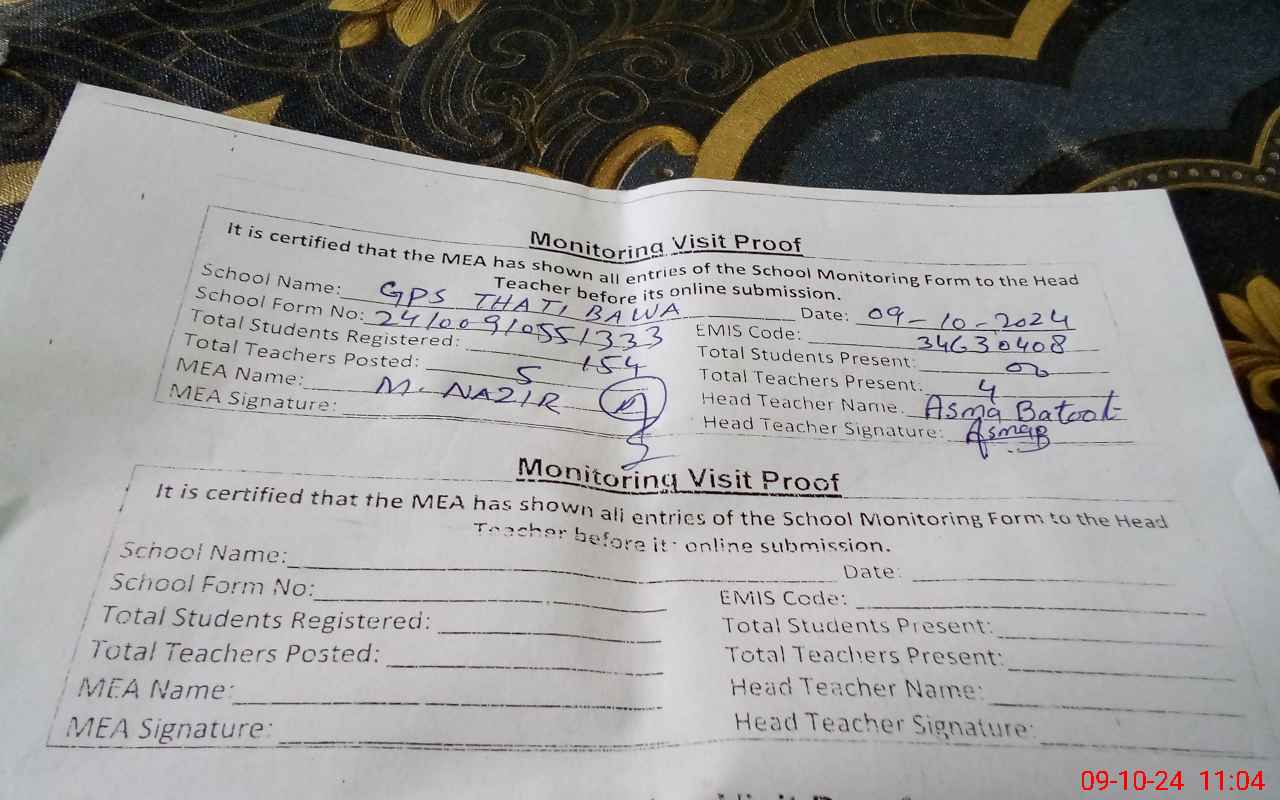 Monitoring Visit Proof
It is certified that the MEA has shown all entries of the School Monitoring Form to the Head
Teacher before its online submission.
School Name: GPS THATI BAWA Date: 09-10-2024
School Form No: 24100910551333 EMIS Code: 34630408
Total Students Registered: 154 Total Students Present: 00
Total Teachers Posted: 5 Total Teachers Present: 4
MEA Name: M. NAZIR Head Teacher Name. Asma Batool
MEA Signature: Head Teacher Signature: AsmaB
Monitoring Visit Proof
It is certified that the MEA has shown all entries of the School Monitoring Form to the Head
Teacher before its online submission.
School Name: Date:
School Form No: EMIS Code:
Total Students Registered: Total Students Present:
Total Teachers Posted: Total Teachers Present:
MEA Name: Head Teacher Name:
MEA Signature: Head Teacher Signature:
09-10-24 11:04